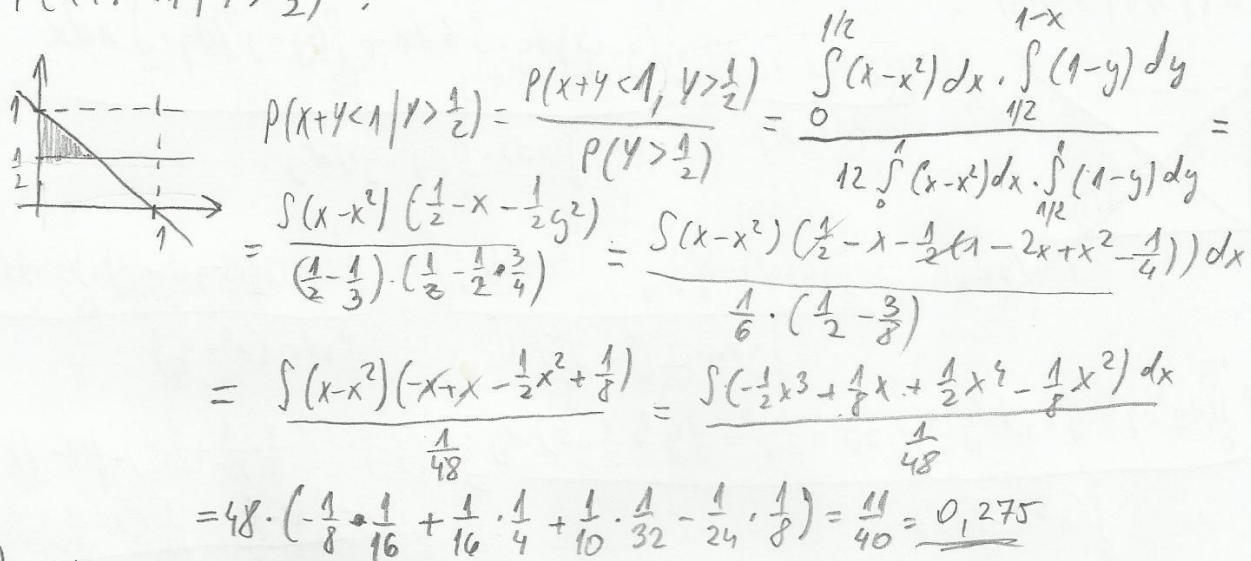 1
1/2
1
P(X+Y<1 | Y>1/2) = P(X+Y<1, Y>1/2) / P(Y>1/2) = ∫_0^{1/2} (x-x²) dx · ∫_{1/2}^{1-x} (1-y) dy / 12 ∫_0^1 (x-x²) dx · ∫_{1/2}^1 (1-y) dy =
= ∫(x-x²) (1/2 - x - 1/2 y²) / (1/2 - 1/3) · (1/2 - 1/2 · 3/4) = ∫(x-x²) (1/2 - x - 1/2 (1 - 2x + x² - 1/4)) dx / 1/6 · (1/2 - 3/8)
= ∫(x-x²) (-x+x - 1/2 x² + 1/8) / 1/48 = ∫(-1/2 x³ + 1/8 x + 1/2 x⁴ - 1/8 x²) dx / 1/48
= 48 · (-1/8 · 1/16 + 1/16 · 1/4 + 1/10 · 1/32 - 1/24 · 1/8) = 11/40 = 0,275